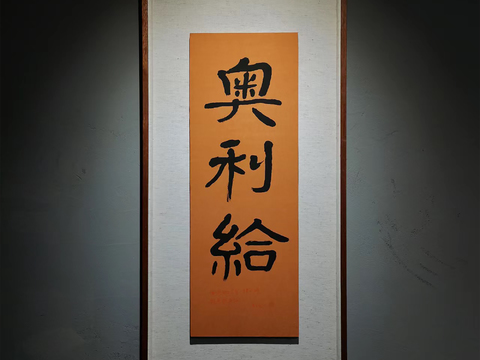 奥利給